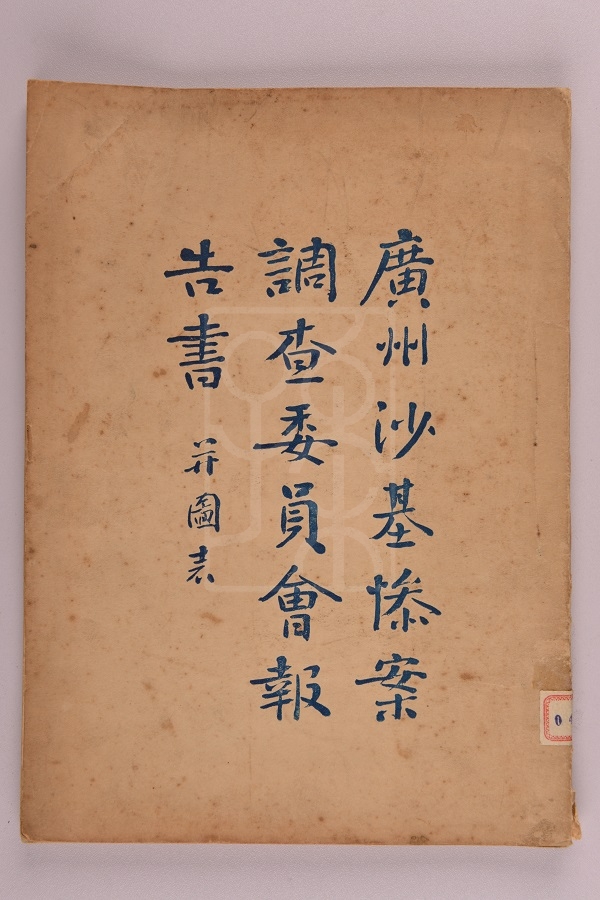 廣州沙基慘案
調查委員會報
告書 并圖表
0 4